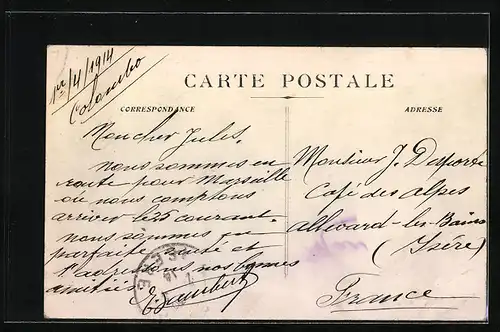 1er/4/1914
Colombo
CARTE POSTALE
CORRESPONDANCE
ADRESSE
Mon cher Jules,
nous sommes en
route pour Marseille
où nous comptons
arriver le 25 courant.
nous sommes en
parfaite santé et
t'adressons nos bonnes
amitiés
Monsieur J.
Café des Alpes
Allevard-les-Bains
(Isère)
France